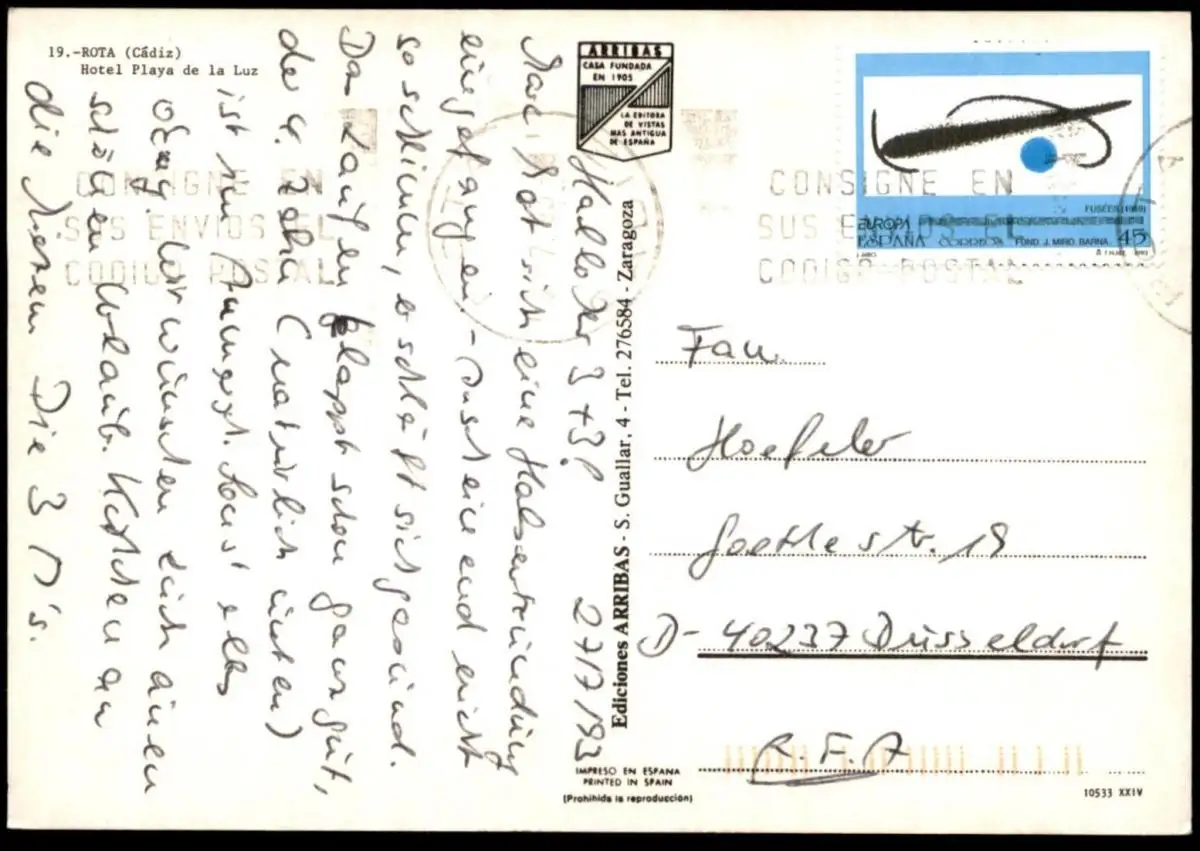 19.-ROTA (Cádiz)
Hotel Playa de la Luz
ARRIBAS
CASA FUNDADA
EN 1905
LA EDITORA
DE VISTAS
MAS ANTIGUA
DE ESPAÑA
Hallo Ihr 3 + 3! 27/7/93
hat sich eine Halsentzündung
eingefangen - hustein und nicht
so schlimm, er schläft sich gesund.
Das Laufen klappt schon ganz gut,
der 4. Zahn (natürlich unten)
ist im Anmarsch. Sonst alles
okay. Wir wünschen Euch einen
schönen Urlaub.
Die 3 M's.
Ediciones ARRIBAS - S. Guallar, 4 - Tel. 276584 - Zaragoza
CONSIGNE EN
SUS ENVIOS EL
CODIGO POSTAL
CONSIGNE EN
SUS ENVIOS EL
CODIGO POSTAL
FUSÉES (1959)
EUROPA
ESPAÑA CORREOS FOND. J. MIRO. BARNA. 45
Fam.
Hoefeler
Goethestr. 18
D-40237 Düsseldorf
R.F.A
IMPRESO EN ESPAÑA
PRINTED IN SPAIN
(Prohibida la reproducción)
10533 XXIV